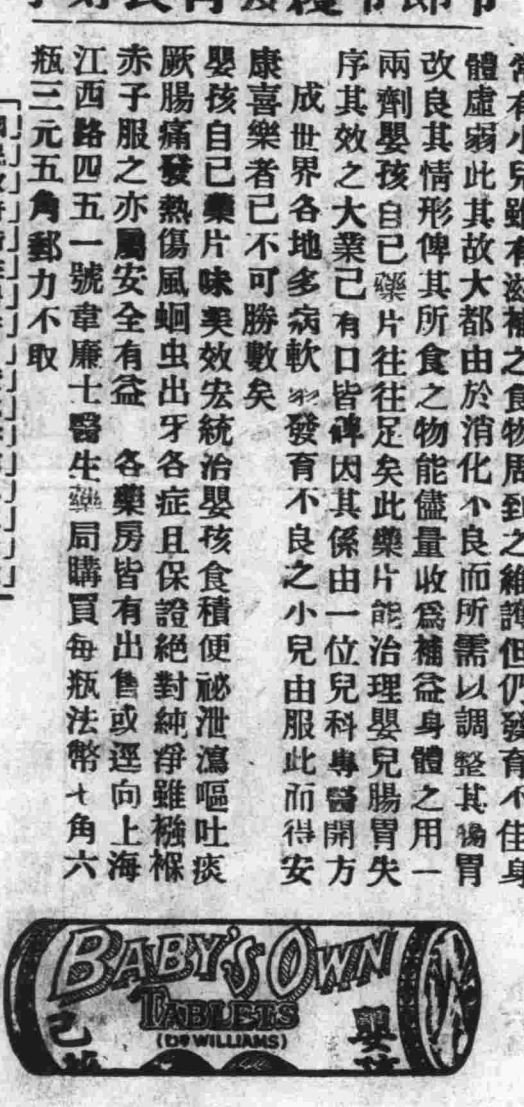 常有小兒雖有滋補之食物周到之維護但仍發育不佳身
體虛弱此其故大都由於消化不良而所需以調整其腸胃
改良其情形俾其所食之物能儘量收爲補益身體之用一
兩劑嬰孩自己藥片往往足矣此藥片能治理嬰兒腸胃失
序其效之大業己有口皆碑因其係由一位兒科專醫開方
成世界各地多病軟弱發育不良之小兒由服此而得安
康喜樂者已不可勝數矣
嬰孩自己藥片味美效宏統治嬰孩食積便祕泄瀉嘔吐痰
厥腸痛發熱傷風蛔虫出牙各症且保證絕對純淨雖襁褓
赤子服之亦屬安全有益 各藥房皆有出售或逕向上海
江西路四五一號韋廉士醫生藥局購買每瓶法幣七角六
瓶三元五角郵力不取
BABY'S OWN
TABLETS
(DR WILLIAMS)
嬰孩
自己